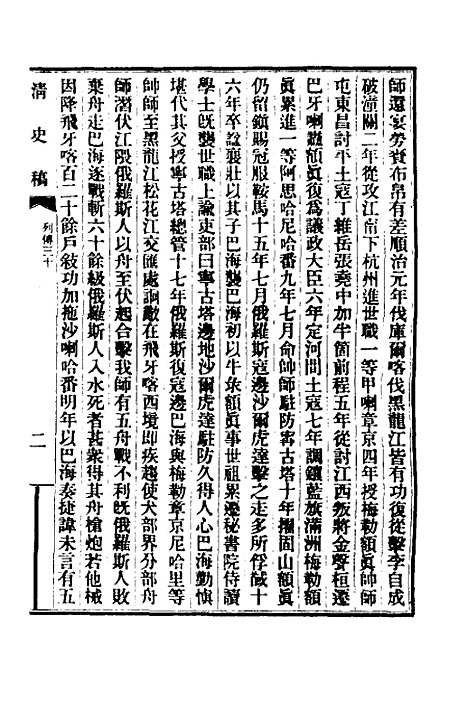 師還宴勞賚布帛有差順治元年伐庫爾喀伐黑龍江皆有功復從擊李自成
破潼關二年從攻江南下杭州進世職一等甲喇章京四年授梅勒額眞帥師
屯東昌討平土寇丁維岳張堯中加牛箇前程五年從討江西叛將金聲桓遷
巴牙喇纛額眞復爲議政大臣六年定河間土寇七年調鑲藍旗滿洲梅勒額
眞累進一等阿思哈尼哈番九年七月命帥師駐防寧古塔十年擢固山額眞
仍留鎭賜冠服鞍馬十五年七月俄羅斯寇邊沙爾虎達擊之走多所俘馘十
六年卒諡襄壯以其子巴海襲巴海初以牛彔額眞事世祖累遷秘書院侍讀
學士旣襲世職上諭吏部曰寧古塔邊地沙爾虎達駐防久得人心巴海勤愼
堪代其父授寧古塔總管十七年俄羅斯復寇邊巴海與梅勒章京尼哈里等
帥師至黑龍江松花江交匯處詗敵在飛牙喀西境卽疾趨使犬部界分部舟
師潛伏江隈俄羅斯人以舟至伏起合擊我師有五舟戰不利旣俄羅斯人敗
棄舟走巴海逐戰斬六十餘級俄羅斯人入水死者甚衆得其舟槍炮若他械
因降飛牙喀百二十餘戶敍功加拖沙喇哈番明年以巴海奏捷諱未言有五
淸史稿
列傳三十
二